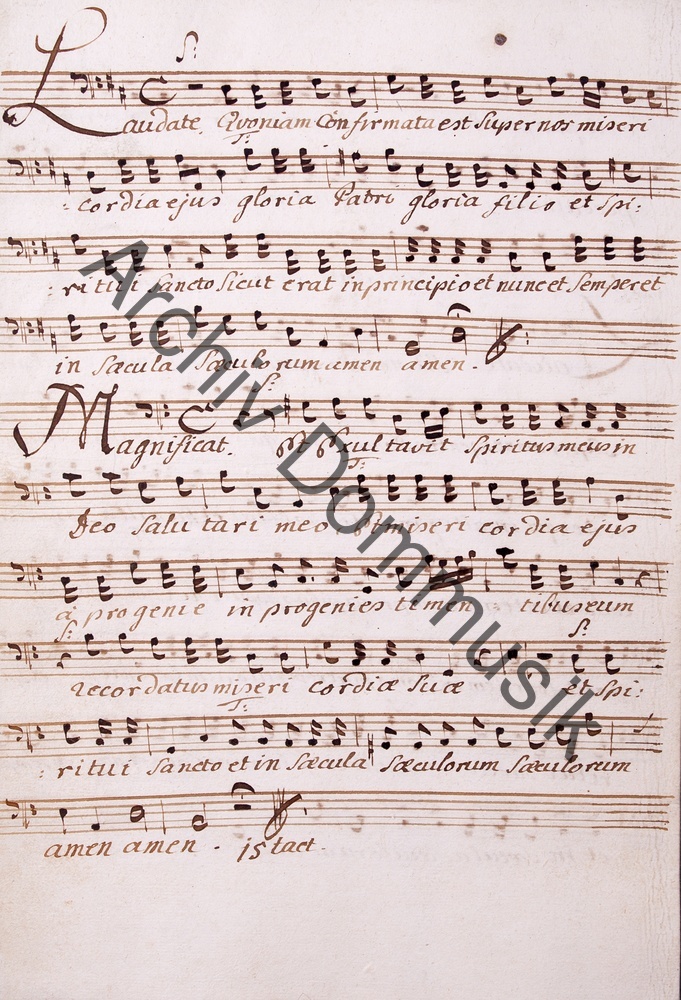 S:
Laudate. Quoniam Confirmata est super nos miseri
T:
: cordia ejus gloria Patri gloria filio et spi:
: ritui sancto sicut erat in principio et nunc et semper et
in sæcula sæculorum amen amen.
S:
Magnificat. Et Exultavit spiritus meus in
T:
Deo salutari meo Et miseri cordia ejus
à progenie in progenies timentibus eum
S: S:
recordatus miseri cordiæ suæ et spi:
T:
: ritui sancto et in sæcula sæculorum sæculorum
amen amen. is tact.
Archiv Dommusik